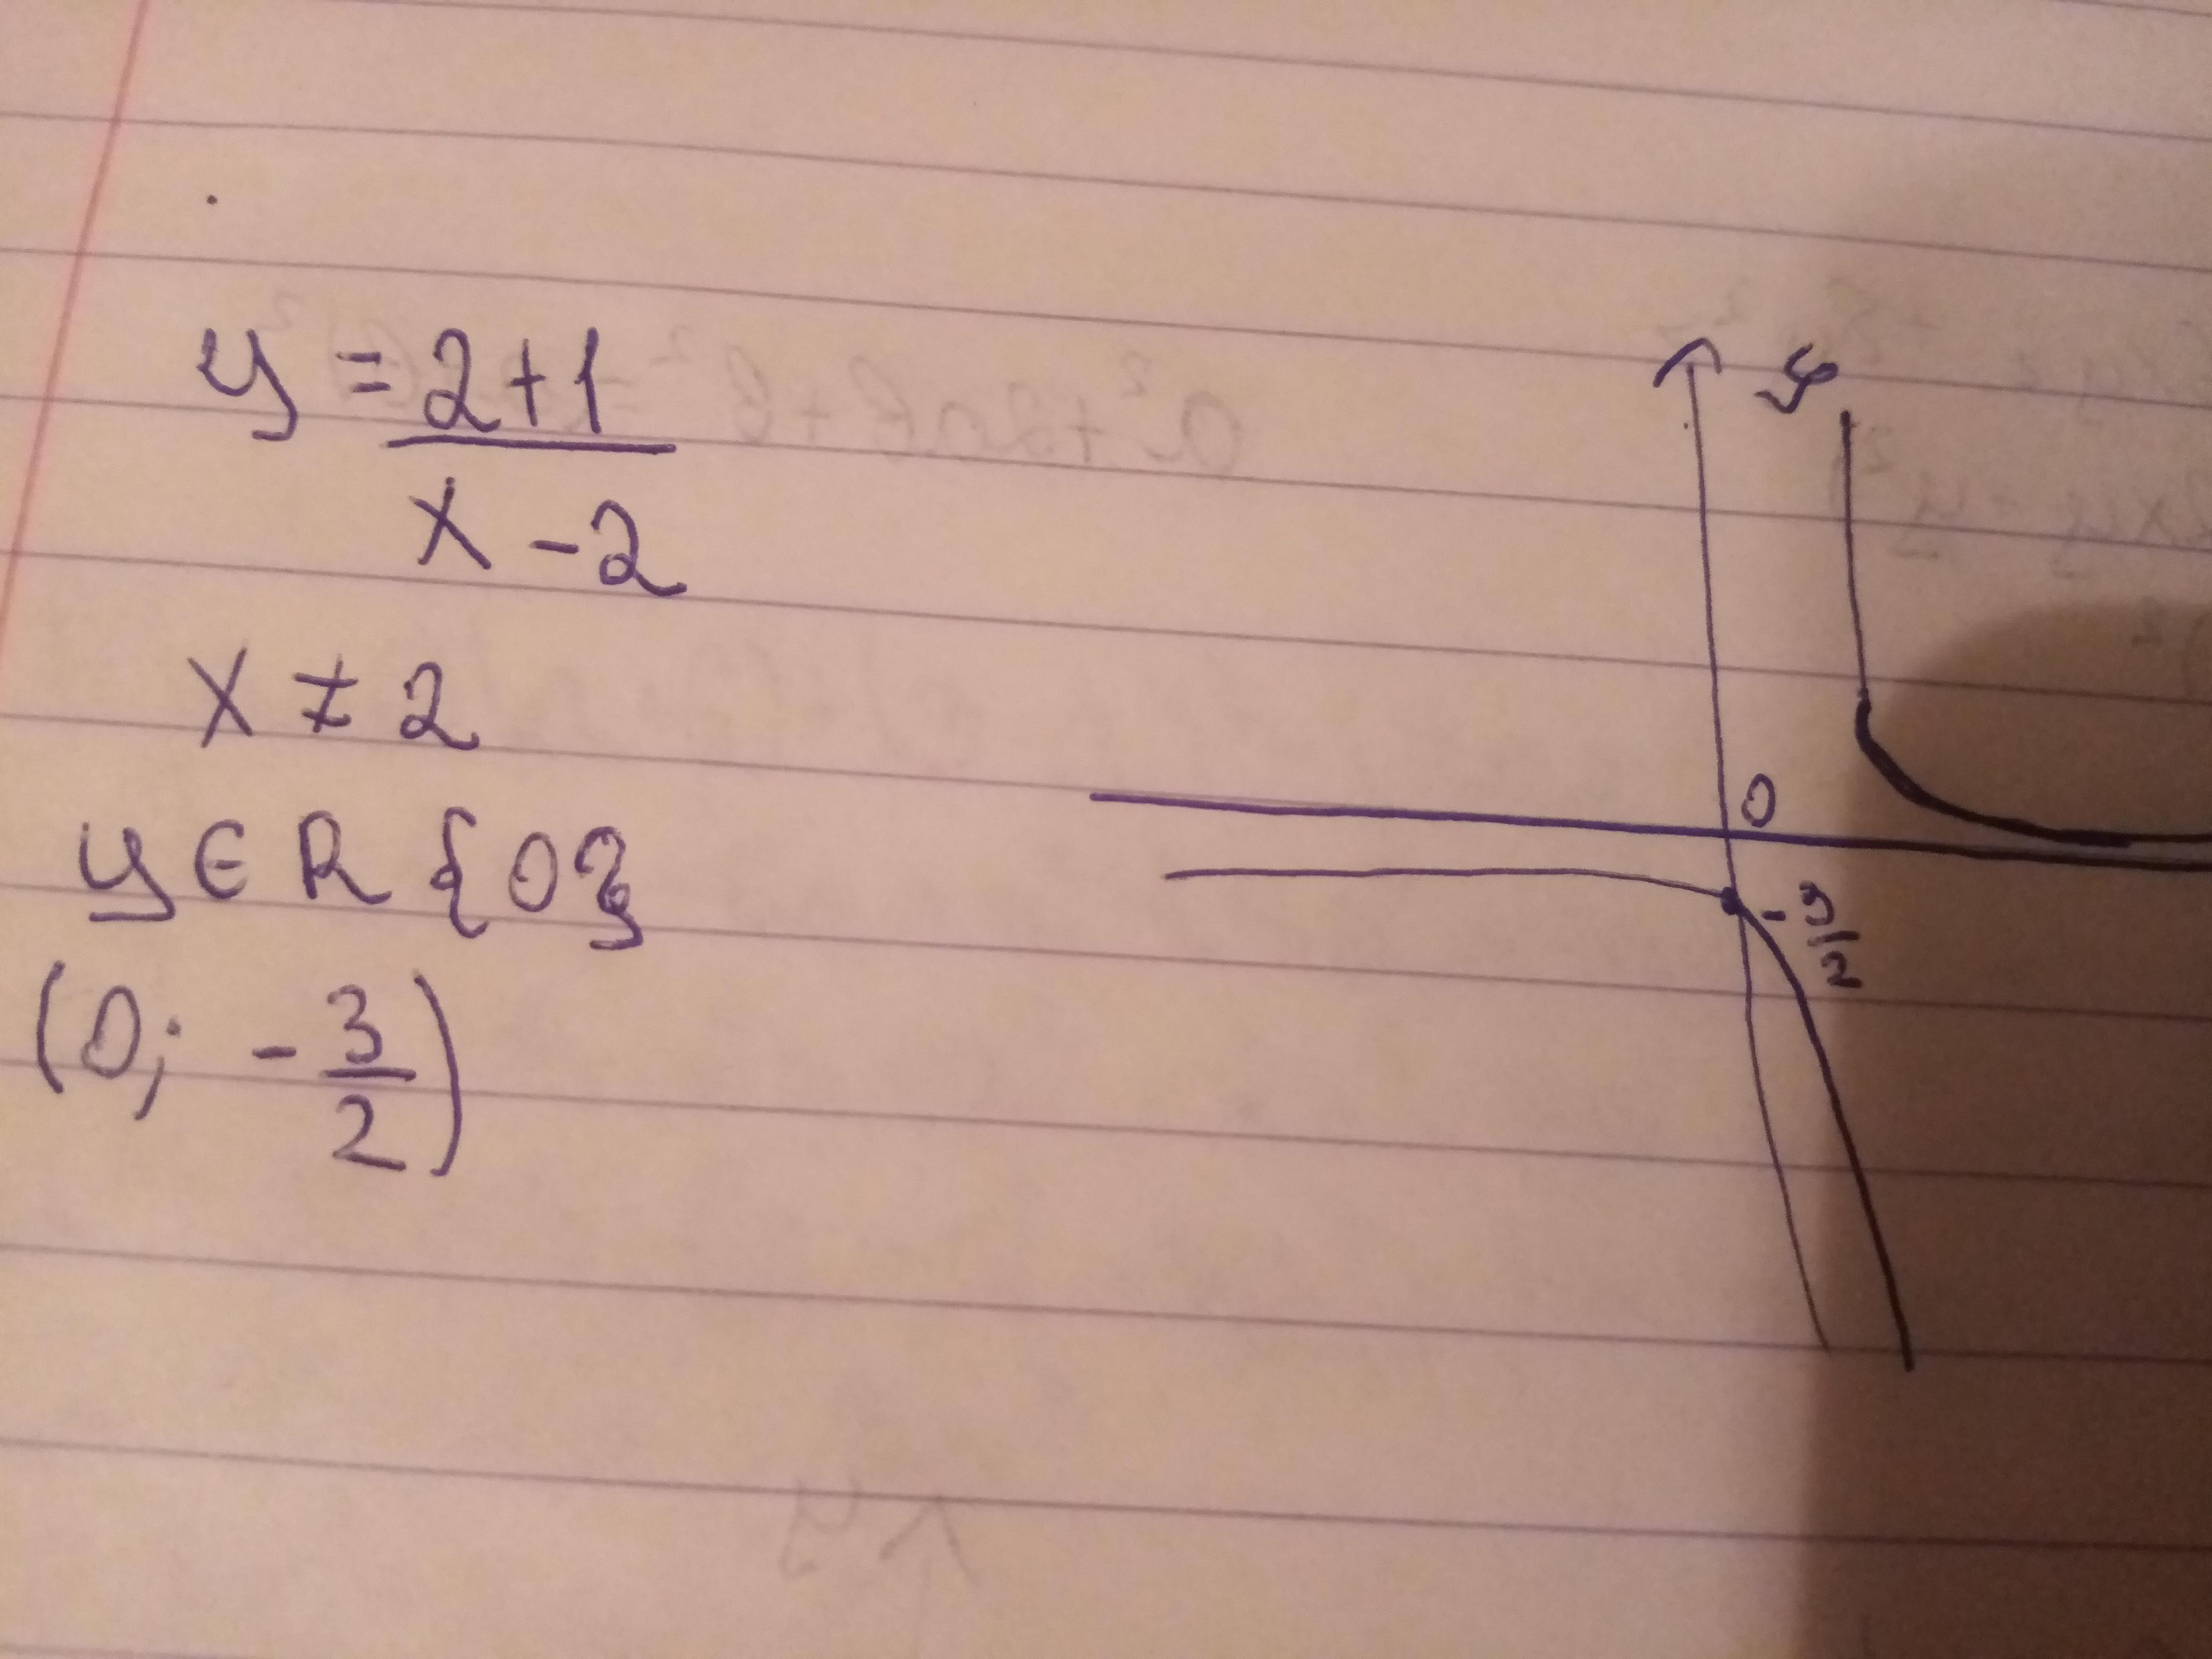 y = 2+1
x - 2
x ≠ 2
y ∈ R {0}
(0; - 3/2)
y
0
- 3/2